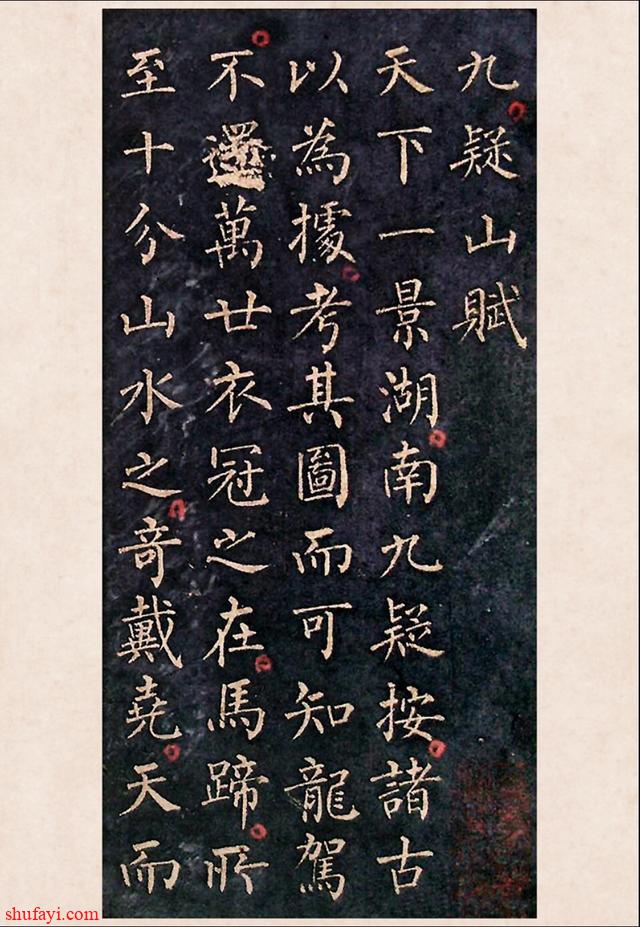 九疑山賦
天下一景湖南九疑按諸古
以為據考其圖而可知龍駕
不還萬廿衣冠之在馬蹄所
至十分山水之奇戴堯天而
shufayi.com